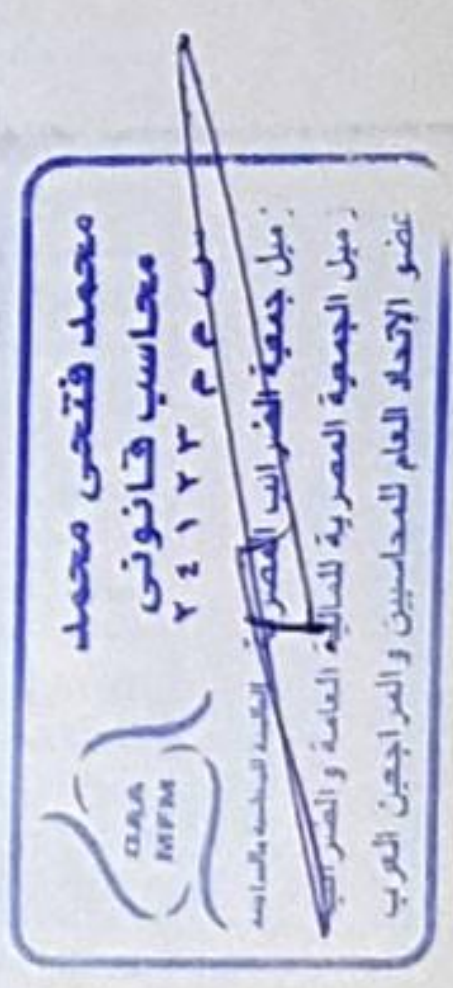 محمد فتحى محمد
محاسب قانونى
س م م ٢٤١٢٣
زميل جمعية الضرائب المصرية
زميل الجمعية المصرية للمالية العامة والضرائب
عضو الإتحاد العام للمحاسبين والمراجعين العرب
DAA
MFM